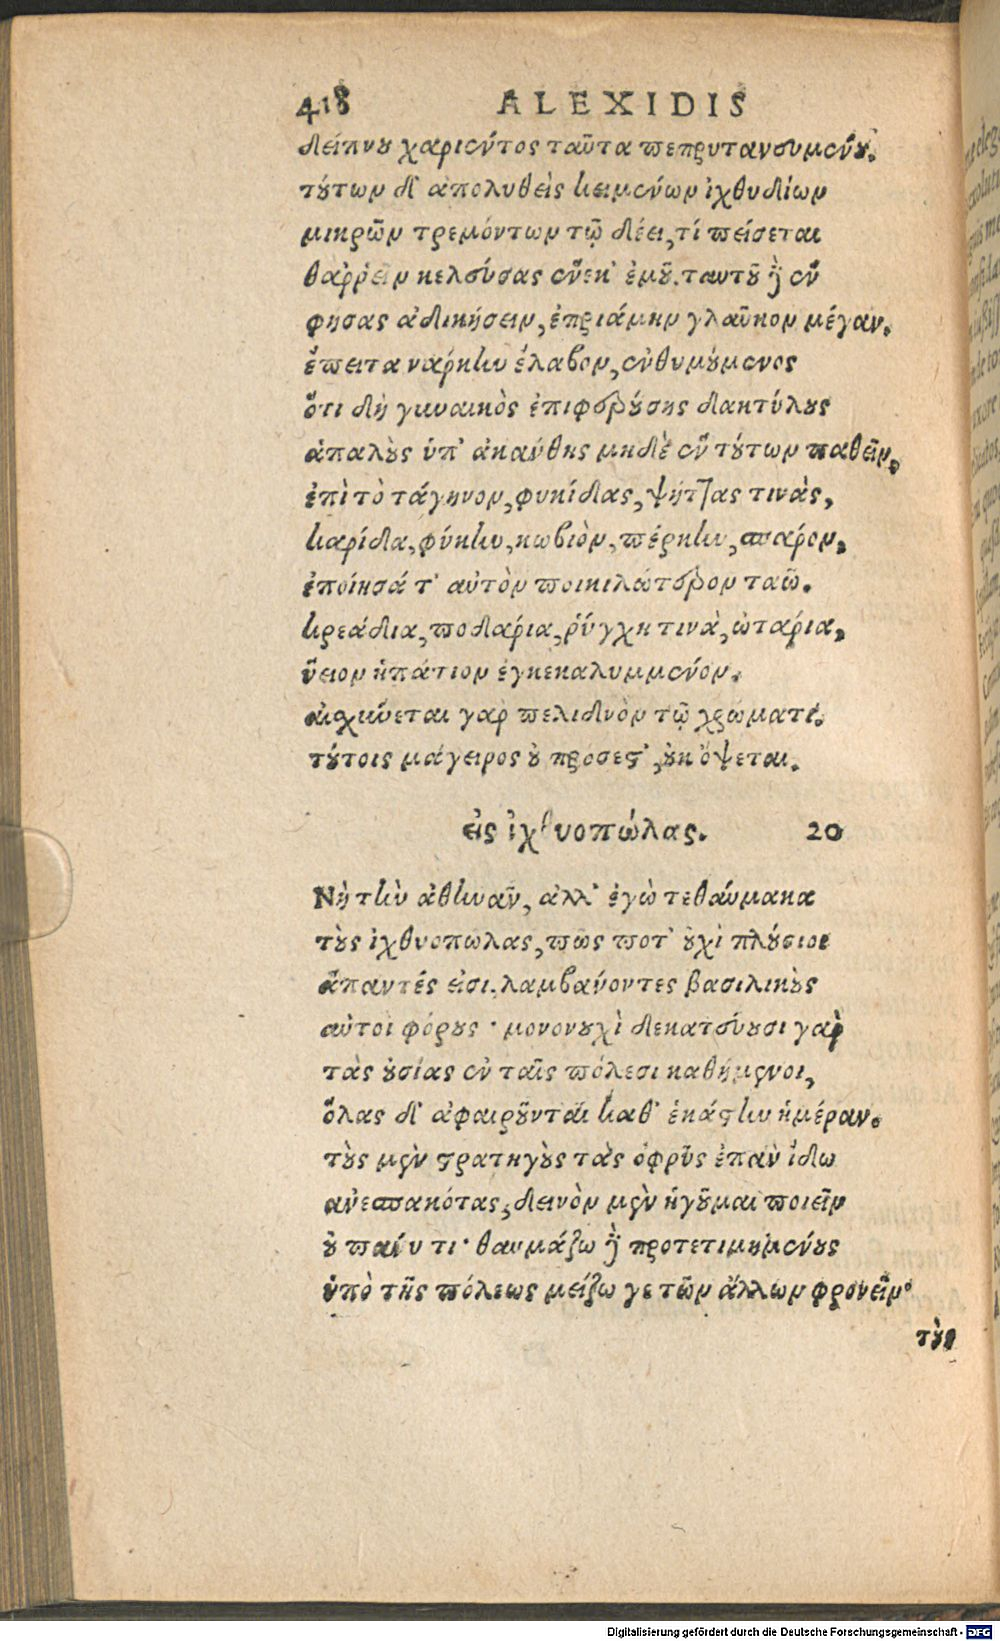 418 ALEXIDIS
δείπνου χαριέντος ταῦτα πεπρυτανευμένου.
τούτων δ' ἀπολυθεὶς κειμένων ἰχθυδίων
μικρῶν τρεμόντων τῷ δέει, τί πείσεται
θαῤῥεῖν κελεύσας ἕνεκ' ἐμοῦ. ταυτοῦ καὶ ἓν
φησας ἀδικήσειν, ἐπριάμην γλαῦκον μέγαν.
ἔπειτα νάρκην ἔλαβον, ἐνθυμούμενος
ὅτι δὴ γυναικὸς ἐπιφερούσης δακτύλους
ἁπαλοὺς ὑπ' ἀκαύθης μηδὲ ἓν τούτων παθεῖν.
ἐπὶ τὸ τάγηνον, φυκίδας, ψήττας τινὰς,
καρίδα, φύκην, κωβιὸν, πέρκην, σπάρον,
ἐποίησά τ' αὐτὸν ποικιλώτερον ταῶ.
κρεάδια, ποδάρια, ῥύγχη τινὰ, ὠτάρια,
ὕειον ἡπάτιον ἐγκεκαλυμμένον.
αἰσχύνεται γὰρ πελιδνὸν τῷ χρώματι.
τούτοις μάγειρος οὐ πρόσεστ', οὐκ ὄψεται.
εἰς ἰχθυοπώλας. 20
Νὴ τὴν ἀθηνᾶν, ἀλλ' ἐγὼ τεθαύμακα
τοὺς ἰχθυοπωλας, πῶς ποτ' οὐχὶ πλούσιοι
ἅπαντές εἰσι. λαμβανοντες βασιλικοὺς
αὐτοὶ φόρους · μονονουχὶ δεκατεύουσι γὰρ
τὰς οὐσίας ἐν ταῖς πόλεσι καθήμενοι,
ὅλας δ' ἀφαιροῦνται καθ' ἑκάστην ἡμέραν.
τοὺς μὲν στρατηγοὺς τὰς ὀφρῦς ἐπὰν ἴδω
ἀνεσπακότας, δεινὸν μὲν ἡγοῦμαι ποιεῖν
οὐ πάνυ τι· θαυμάζω καὶ προτετιμημένους
ὑπὸ τῆς πόλεως μείζω γε τῶν ἄλλων φρονεῖν·
τοὺς
Digitalisierung gefördert durch die Deutsche Forschungsgemeinschaft - DFG